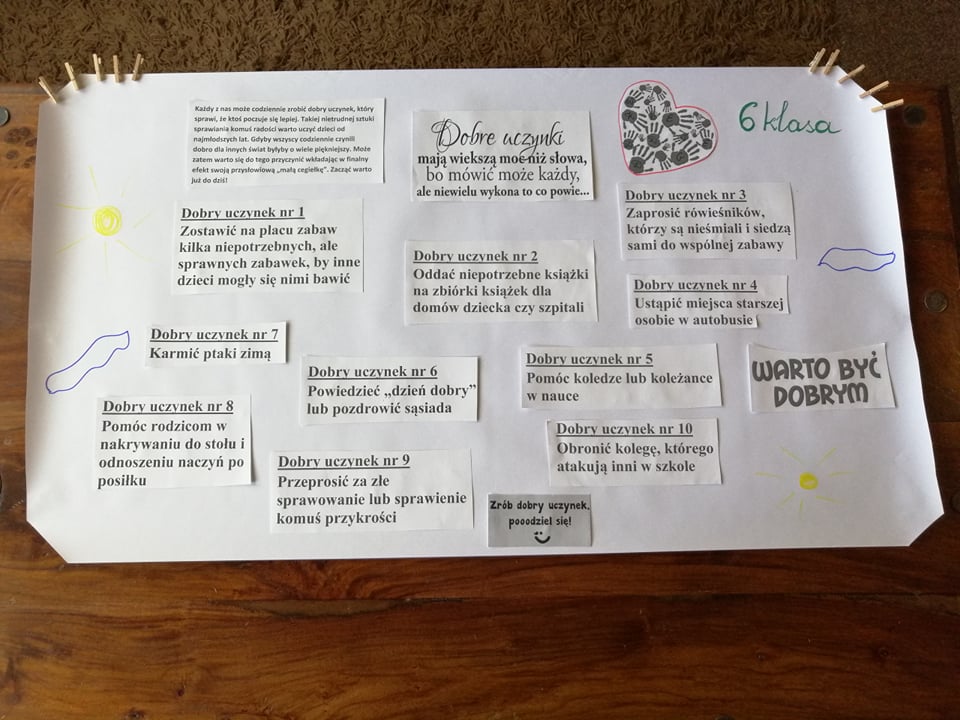 Każdy z nas może codziennie zrobić dobry uczynek, który
sprawi, że ktoś poczuje się lepiej. Takiej nietrudnej sztuki
sprawiania komuś radości warto uczyć dzieci od
najmłodszych lat. Gdyby wszyscy codziennie czynili
dobro dla innych świat byłyby o wiele piękniejszy. Może
zatem warto się do tego przyczynić wkładając w finalny
efekt swoją przysłowiową „małą cegiełkę". Zacząć warto
już do dziś!
Dobre uczynki
mają wiekszą moc niż słowa,
bo mówić może każdy,
ale niewielu wykona to co powie...
6 klasa
Dobry uczynek nr 1
Zostawić na placu zabaw
kilka niepotrzebnych, ale
sprawnych zabawek, by inne
dzieci mogły się nimi bawić
Dobry uczynek nr 2
Oddać niepotrzebne książki
na zbiórki książek dla
domów dziecka czy szpitali
Dobry uczynek nr 3
Zaprosić rówieśników,
którzy są nieśmiali i siedzą
sami do wspólnej zabawy
Dobry uczynek nr 4
Ustąpić miejsca starszej
osobie w autobusie
Dobry uczynek nr 7
Karmić ptaki zimą
Dobry uczynek nr 6
Powiedzieć „dzień dobry"
lub pozdrowić sąsiada
Dobry uczynek nr 5
Pomóc koledze lub koleżance
w nauce
WARTO BYĆ
DOBRYM
Dobry uczynek nr 8
Pomóc rodzicom w
nakrywaniu do stołu i
odnoszeniu naczyń po
posiłku
Dobry uczynek nr 9
Przeprosić za złe
sprawowanie lub sprawienie
komuś przykrości
Dobry uczynek nr 10
Obronić kolegę, którego
atakują inni w szkole
Zrób dobry uczynek,
pooodziel się!